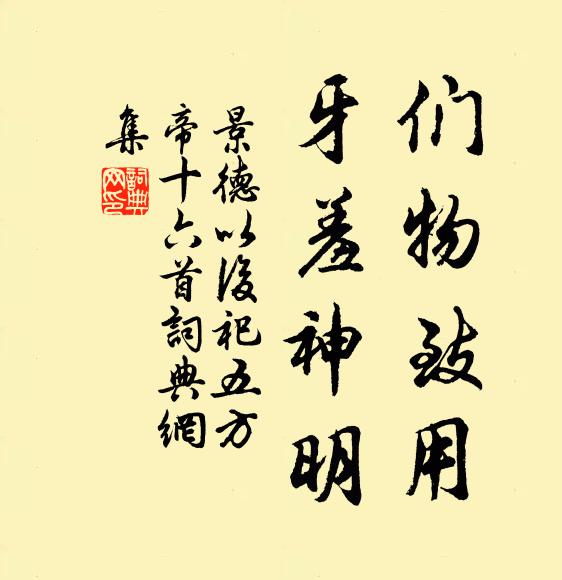 们物致用
牙羞神明
景德以後祀五方
帝十六首詞典網
集
詞典
网印